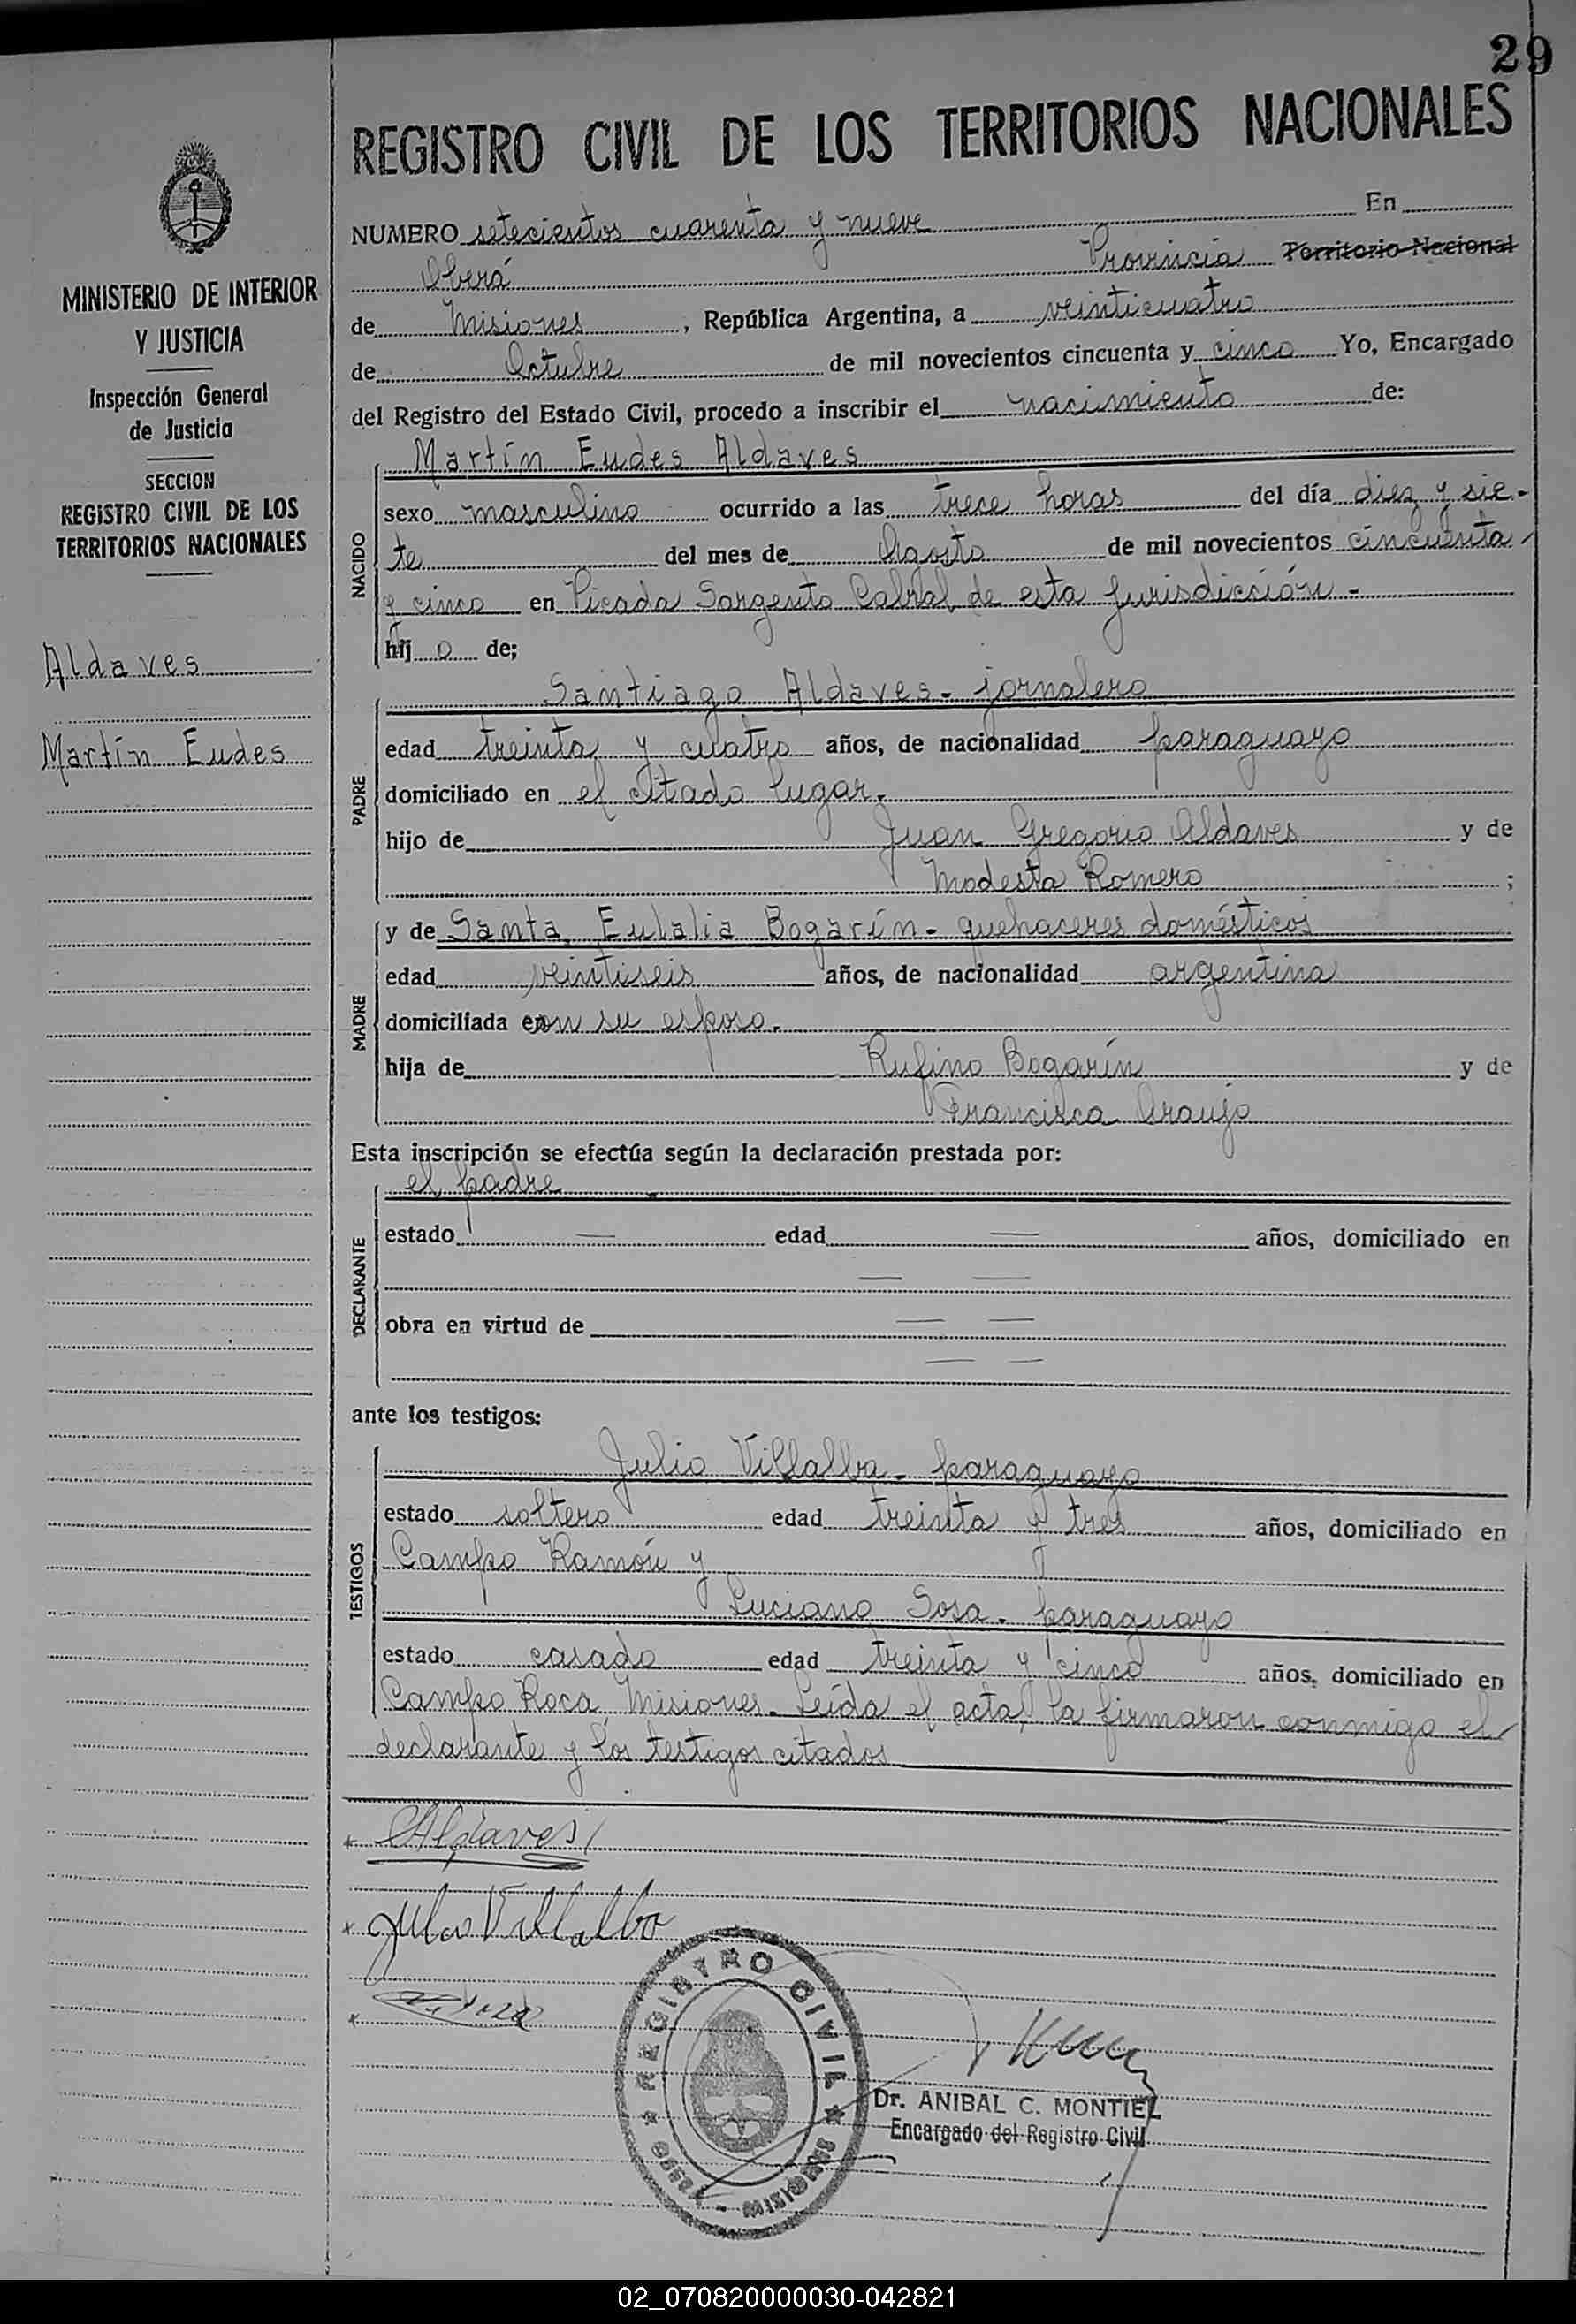 29
REGISTRO CIVIL DE LOS TERRITORIOS NACIONALES
MINISTERIO DE INTERIOR
Y JUSTICIA
Inspección General
de Justicia
SECCION
REGISTRO CIVIL DE LOS
TERRITORIOS NACIONALES
Aldaves
Martín Eudes
NUMERO setecientos cuarenta y nueve En
Oberá Provincia Territorio Nacional
de Misiones, República Argentina, a veinticuatro
de Octubre de mil novecientos cincuenta y cinco Yo, Encargado
del Registro del Estado Civil, procedo a inscribir el nacimiento de:
NACIDO
Martín Eudes Aldaves
sexo masculino ocurrido a las trece horas del día diez y sie-
te del mes de Agosto de mil novecientos cincuenta
y cinco en Picada Sargento Cabral, de esta jurisdicción -
hij o de;
PADRE
Santiago Aldaves - jornalero
edad treinta y cuatro años, de nacionalidad paraguayo
domiciliado en el citado lugar.
hijo de Juan Gregorio Aldaves y de
Modesta Romero ;
MADRE
y de Santa Eulalia Bogarín - quehaceres domésticos
edad veintiseis años, de nacionalidad argentina
domiciliada con su esposo.
hija de Rufino Bogarín y de
Francisca Araujo
Esta inscripción se efectúa según la declaración prestada por:
DECLARANTE
el padre
estado — edad — años, domiciliado en
— —
obra en virtud de — —
— —
ante los testigos:
TESTIGOS
Julio Villalba - paraguayo
estado soltero edad treinta y tres años, domiciliado en
Campo Ramón y
Luciano Sosa - paraguayo
estado casado edad treinta y cinco años, domiciliado en
Campo Roca, Misiones. Leída el acta, la firmaron conmigo el
declarante y los testigos citados
Aldaves
Julio Villalba
REGISTRO CIVIL
OBERA - MISIONES
Dr. ANIBAL C. MONTIEL
Encargado del Registro Civil
02_070820000030-042821